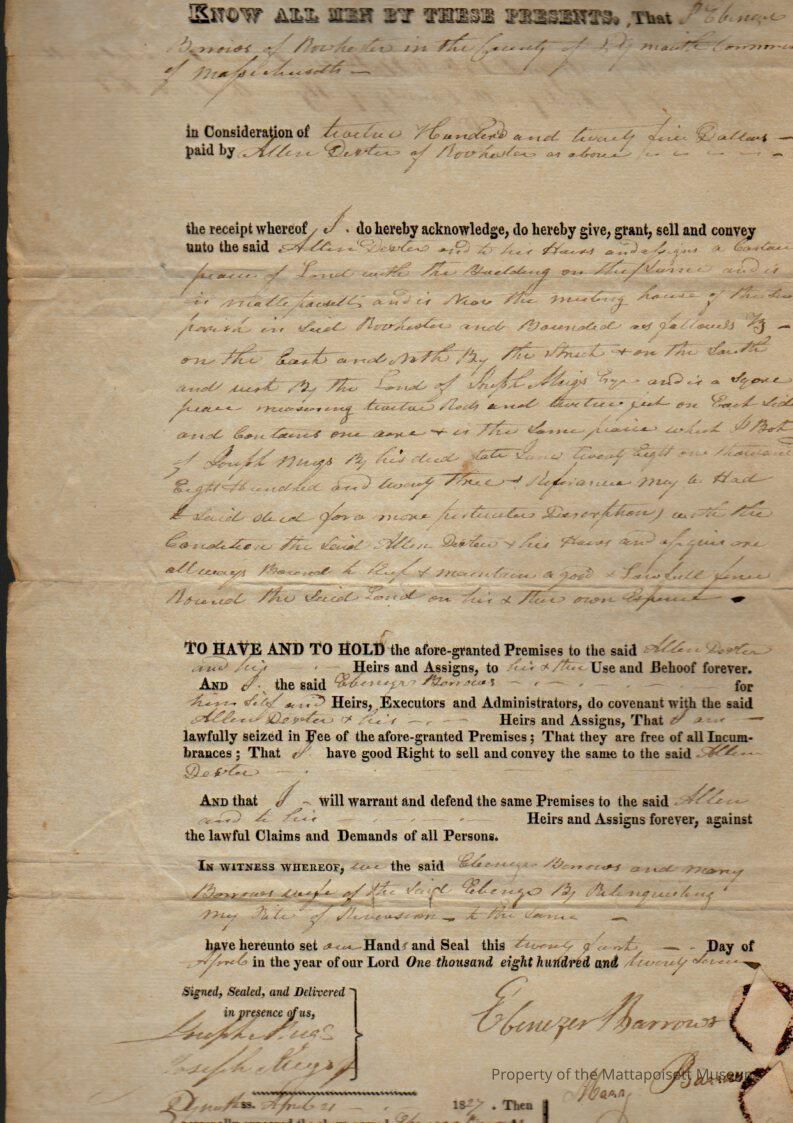 KNOW ALL MEN BY THESE PRESENTS, That I Ebenezer
Borrows of Rochester in the County of Plymouth Common
of Massachusetts —
in Consideration of twelve Hundred and twenty five Dollars —
paid by Allen Dexter of Rochester as above
the receipt whereof I do hereby acknowledge, do hereby give, grant, sell and convey
unto the said Allen Dexter and to his Heirs and assigns a Certain
peace of Land with the Building on the Same and is
in Mattepoisett and is Near the meeting house of the
parish in Said Rochester and Bounded as follows
on the East and North By the Street & on the South
and west By the Land of Joseph Meigs Esqr and is a Sqore
peace measuring twelve Rods and twelve feet on Each Side
and Contains one acre & is the Same peace which I Bot
of Joseph Meigs By his deed date June twenty Eight one thousand
Eight Hundred and twenty three & Referance may be Had
to Said deed for a more perticuler Discription with the
Condition the Said Allen Dexter & his Heirs and assigns are
all ways Bound to Keep & maintain a good & Lawfull fence
Round the Said Land on his & their own Expence
TO HAVE AND TO HOLD the afore-granted Premises to the said Allen Dexter
and his Heirs and Assigns, to his & their Use and Behoof forever.
AND I the said Ebenezer Borrows for
him Self and Heirs, Executors and Administrators, do covenant with the said
Allen Dexter & his Heirs and Assigns, That I am —
lawfully seized in Fee of the afore-granted Premises; That they are free of all Incum-
brances; That I have good Right to sell and convey the same to the said Allen
Dexter
AND that I will warrant and defend the same Premises to the said Allen
and to his Heirs and Assigns forever, against
the lawful Claims and Demands of all Persons.
IN WITNESS WHEREOF, we the said Ebenezer Borrows and Mary
Borrows wife of the Said Ebenezer By Relinquishing
my Rite of Reversion to the Same —
have hereunto set our Hands and Seal this twenty first Day of
April in the year of our Lord One thousand eight hundred and twenty Seven
Signed, Sealed, and Delivered
in presence of us,
Joseph Meigs
Ebenezer Barrows
Mary Barrows
Property of the Mattapoisett Museum
Plymouth ss. April 21 1827. Then